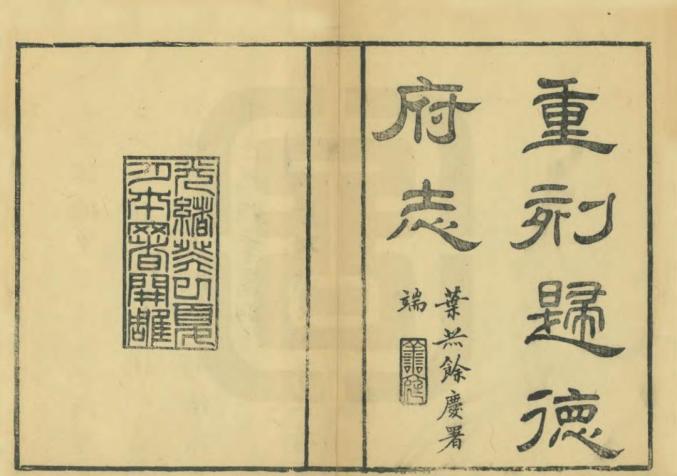 重刻歸德
府志
葉赫餘慶署
端
光緒癸巳夏
月本署開雕